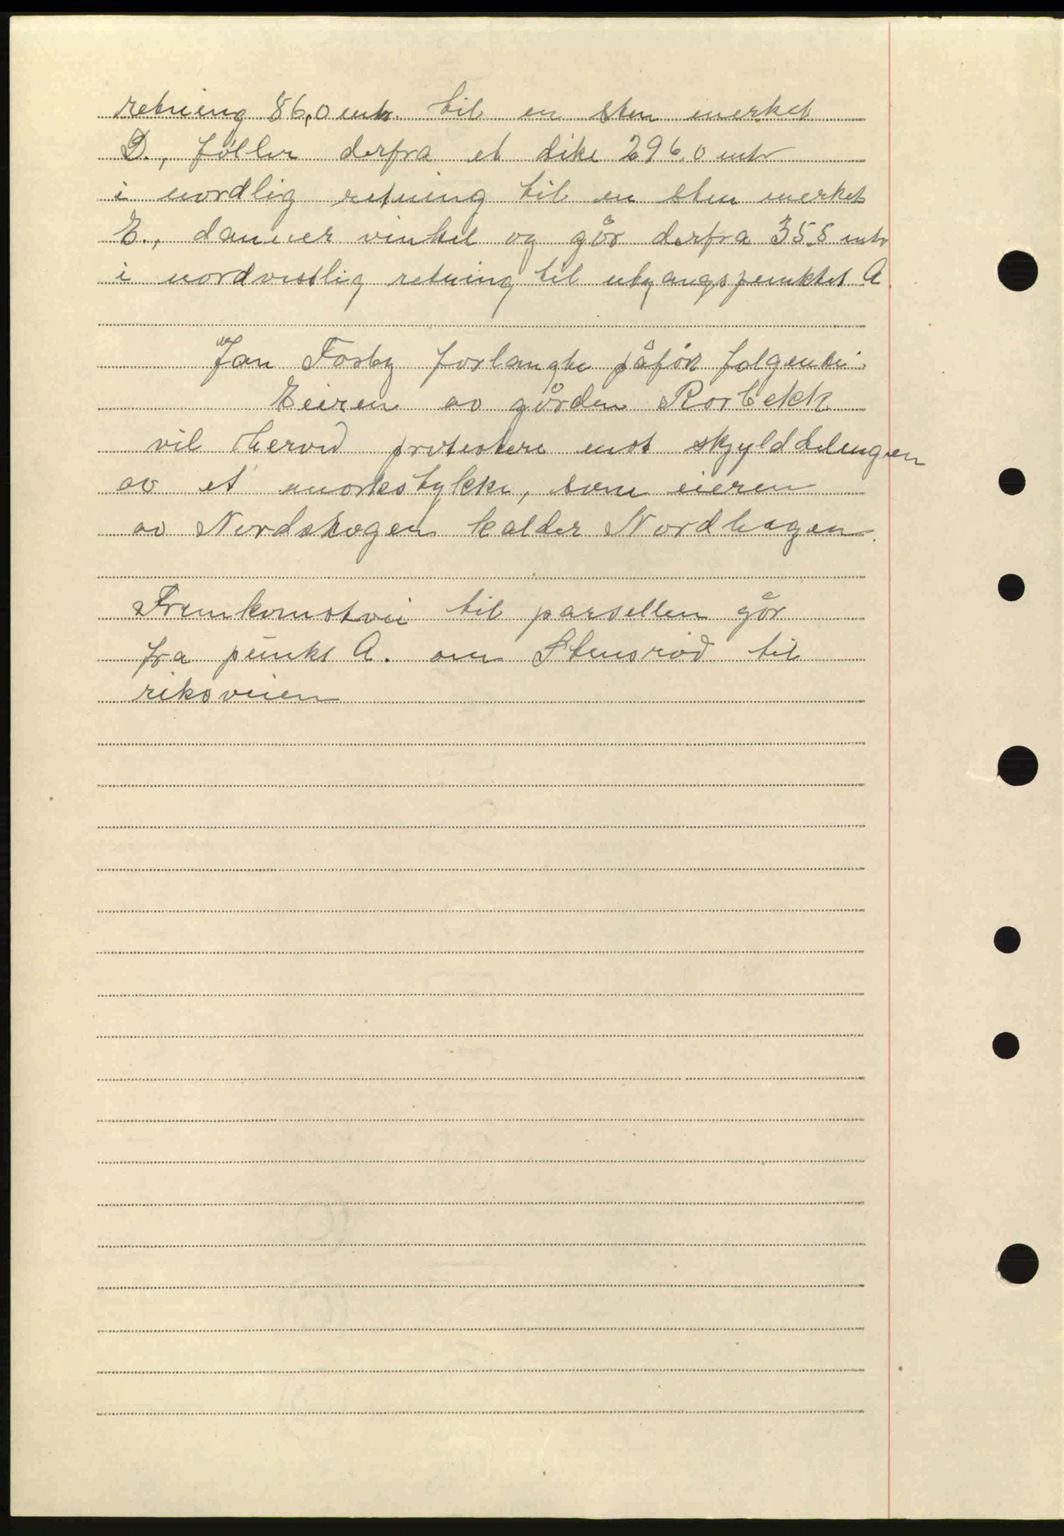 retning 86,0 mtr. til en sten merket
D., føller derfra et dike 296,0 mtr
i nordlig retning til en sten merket
E., danner vinkel og går derfra 355 mtr
i nordvestlig retning til utgangspunktet A.
Jan Fosby forlangte påført følgende:
Eieren av gården Rørbekk
vil herved protestere mot skylddelingen
av et markstykke, som eieren
av Nordskogen kalder Nordhagen.
Fremkomstvei til parsellen går
fra punkt A. om Stensrød til
riksveien